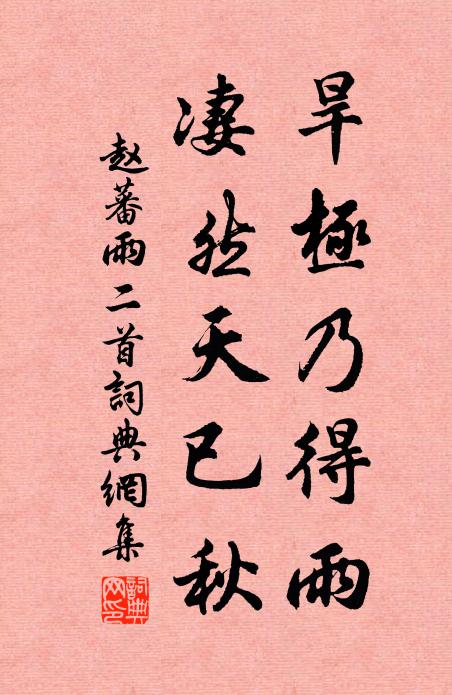 旱極乃得雨
凄然天已秋
趙蕃雨二首詞典網集
詞典網印